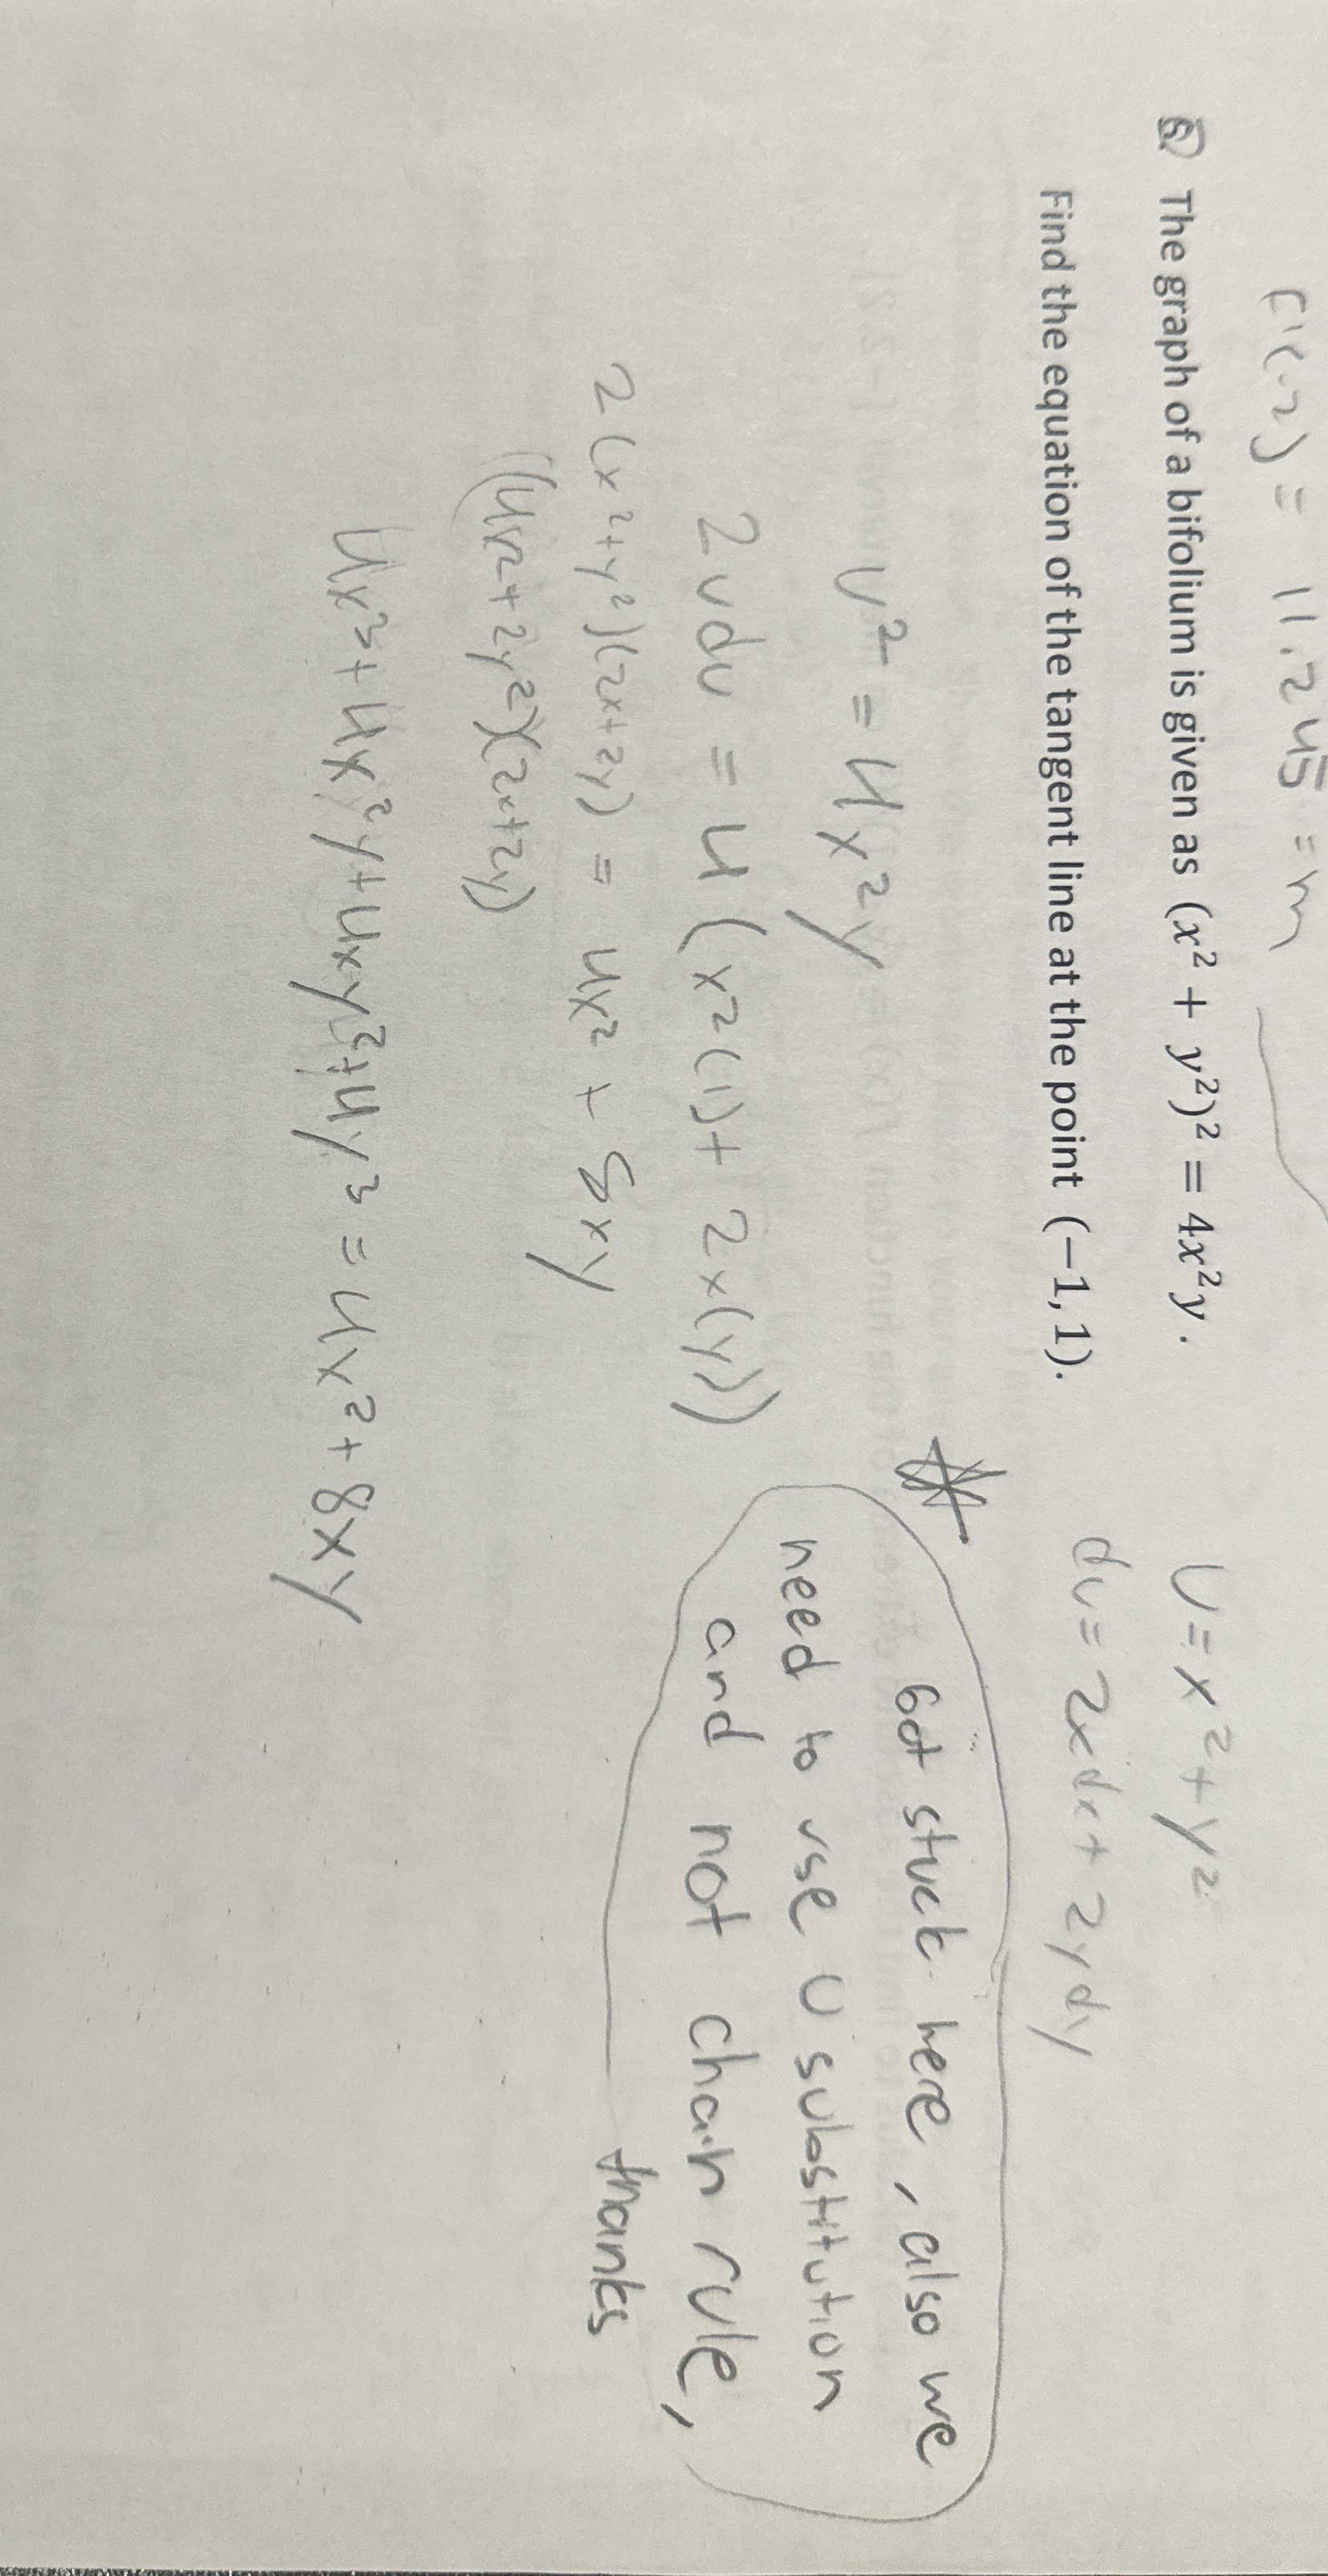 f'(.2) = 11.245 = m
6. The graph of a bifolium is given as (x² + y²)² = 4x²y .
Find the equation of the tangent line at the point (−1, 1).
U = x² + y²
du = 2xdx + 2ydy
U² = 4x²y
2udu = 4(x²(1) + 2x(y))
2(x²+y²)(2x+2y) = 4x² + 8xy
((4x²+2y²)(2x+2y)
4x³+4x²y+4xy²+4y³ = 4x²+8xy
Got stuck here, also we
need to use U substitution
and not chain rule,
thanks